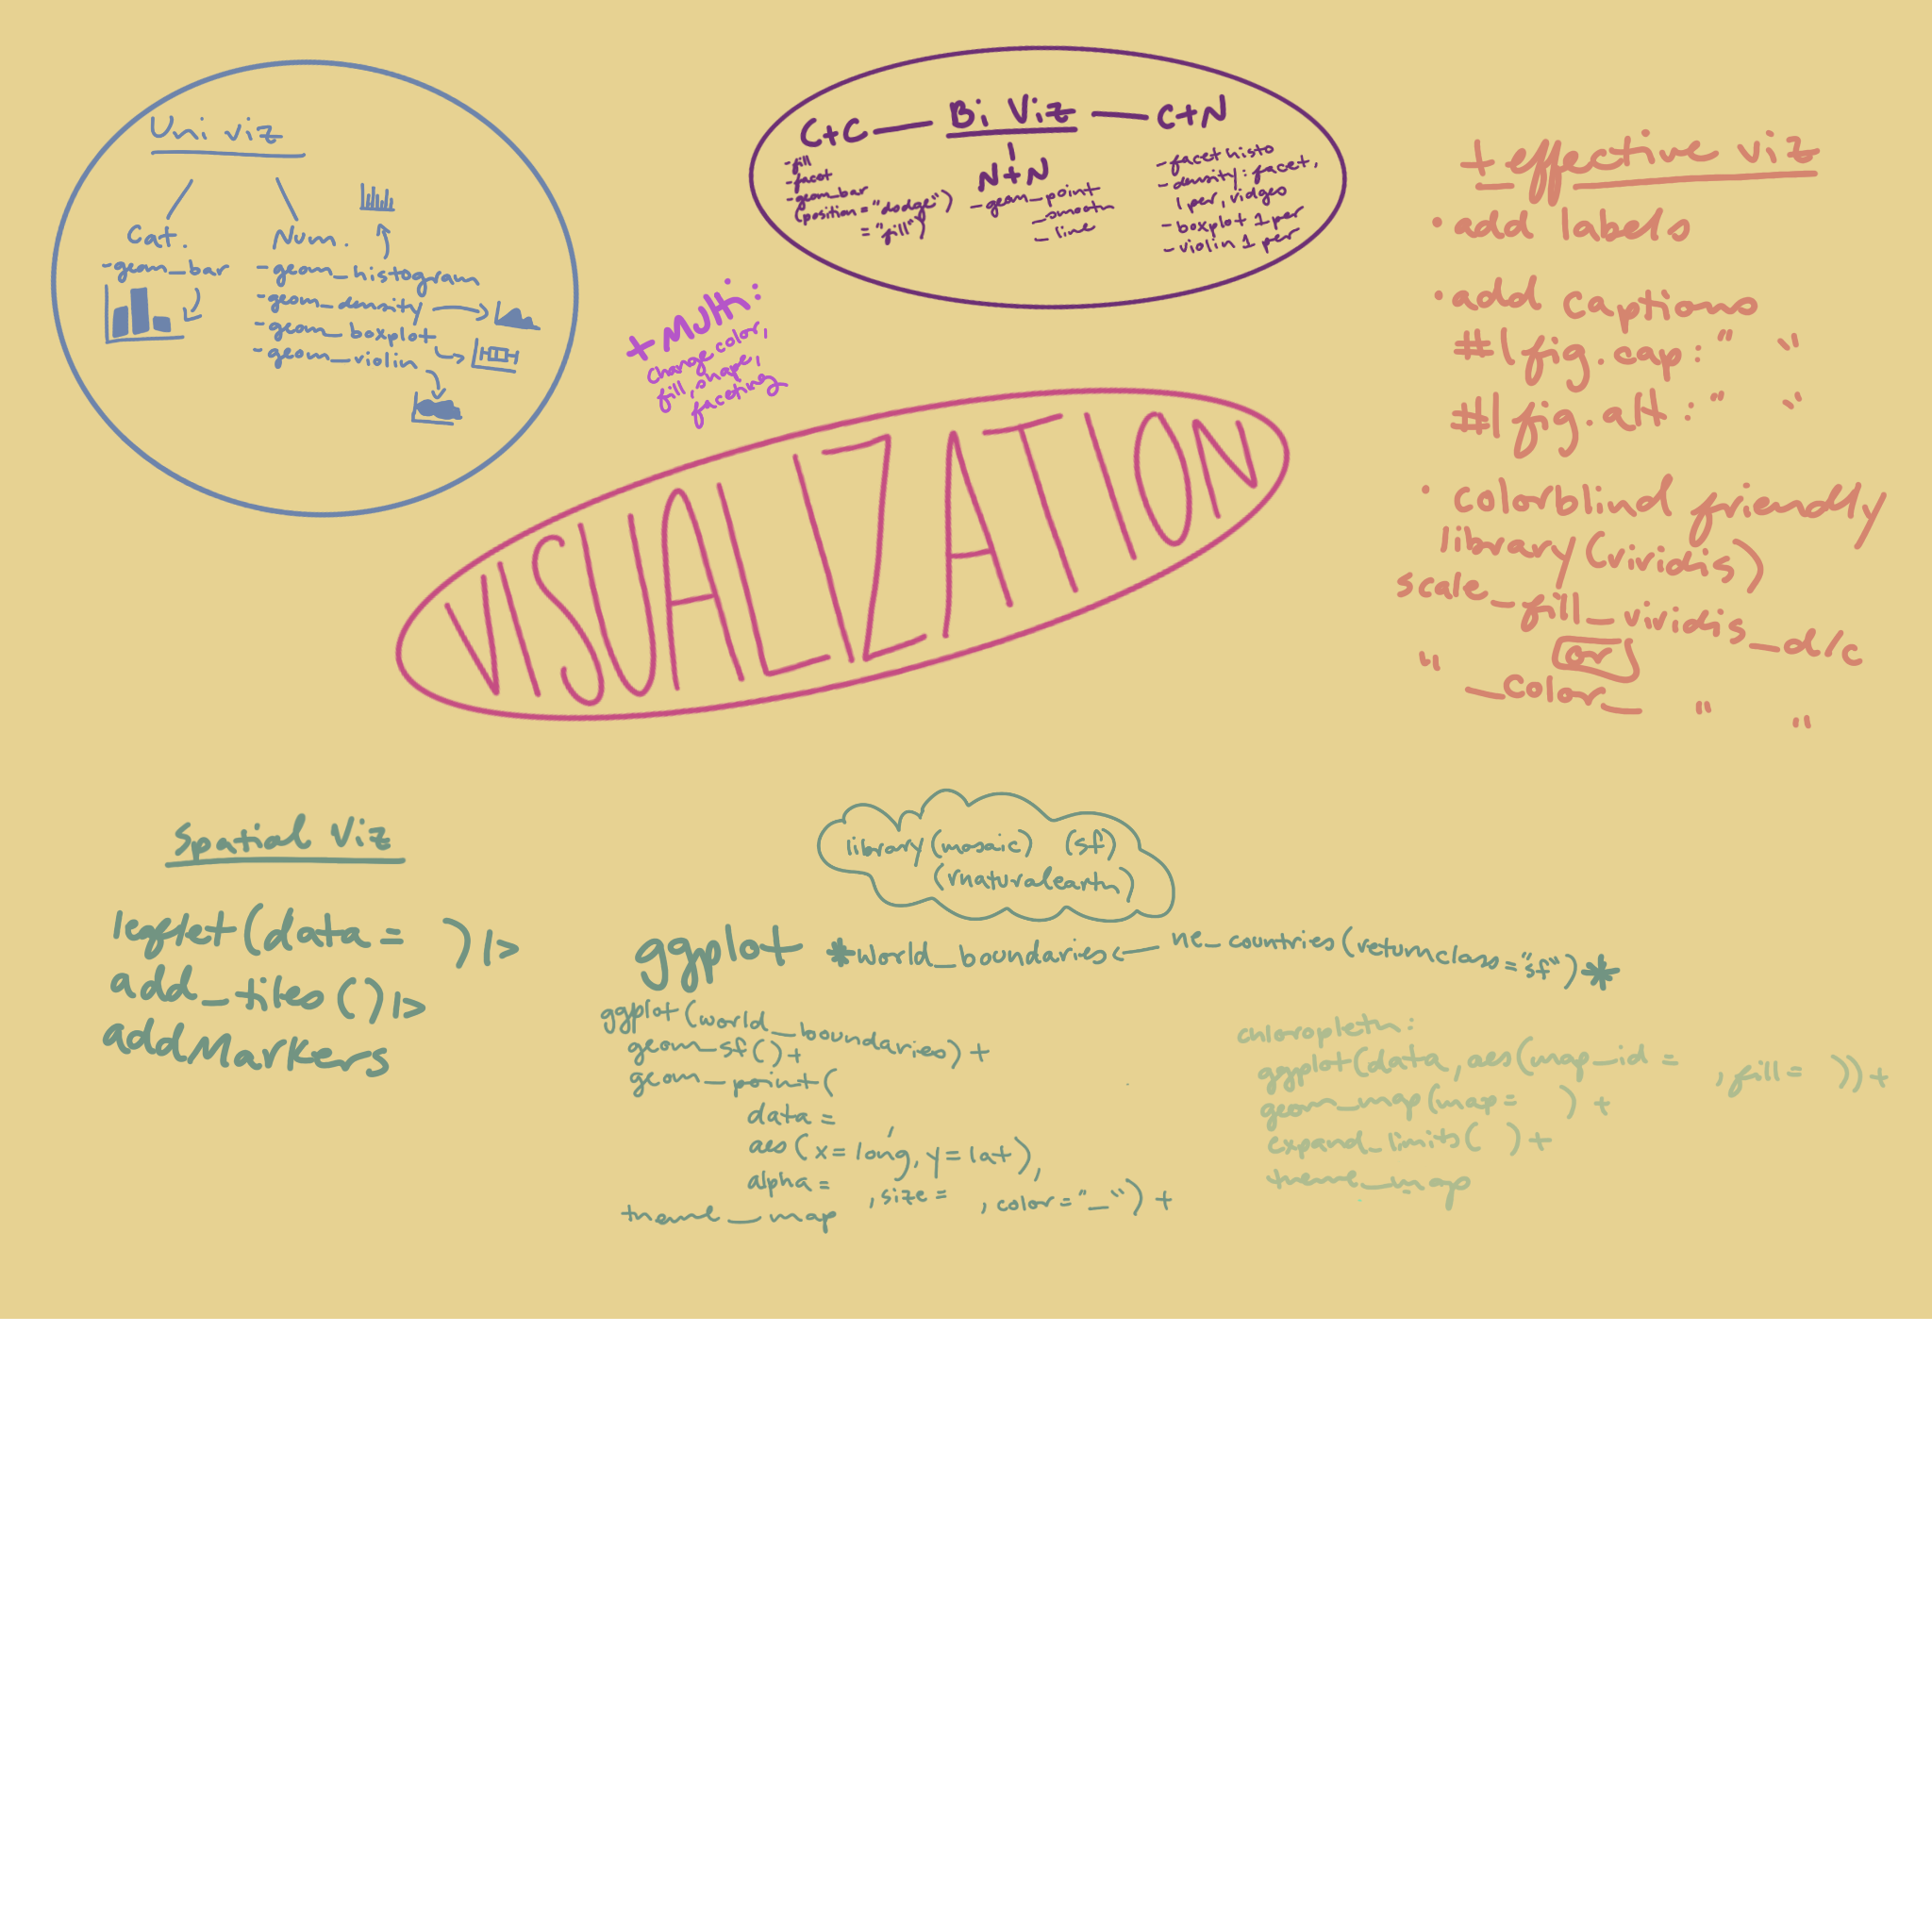 Uni viz
Cat.
-geom_bar
Num.
-geom_histogram
-geom_density
-geom_boxplot
-geom_violin
C+C — Bi Viz — C+N
-fill
-facet
-geom_bar
(position="dodge")
="fill")
N+N
-geom_point
_smooth
_line
-facet histo
-density: facet,
1 per, ridges
-boxplot 1 per
-violin 1 per
+Multi:
change color,
fill, shape,
faceting
VISUALIZATION
+ effective viz
•add labels
•add captions
#|fig.cap:" "
#|fig.alt:" "
• colorblind friendly
library(viridis)
scale_fill_viridis_d/c
or
" _color_ " "
Spatial Viz
leaflet(data= )|>
add_tiles()|>
addMarkers
library(mosaic) (sf)
(rnaturalearth)
ggplot *world_boundaries<— ne_countries(returnclass="sf")*
ggplot(world_boundaries)+
geom_sf()+
geom_point(
data= ,
aes(x=long, y=lat),
alpha= ,size= ,color="_")+
theme_map
chloropleth:
ggplot(data, aes(map_id= ,fill= ))+
geom_map(map= )+
expand_limits( )+
theme_map